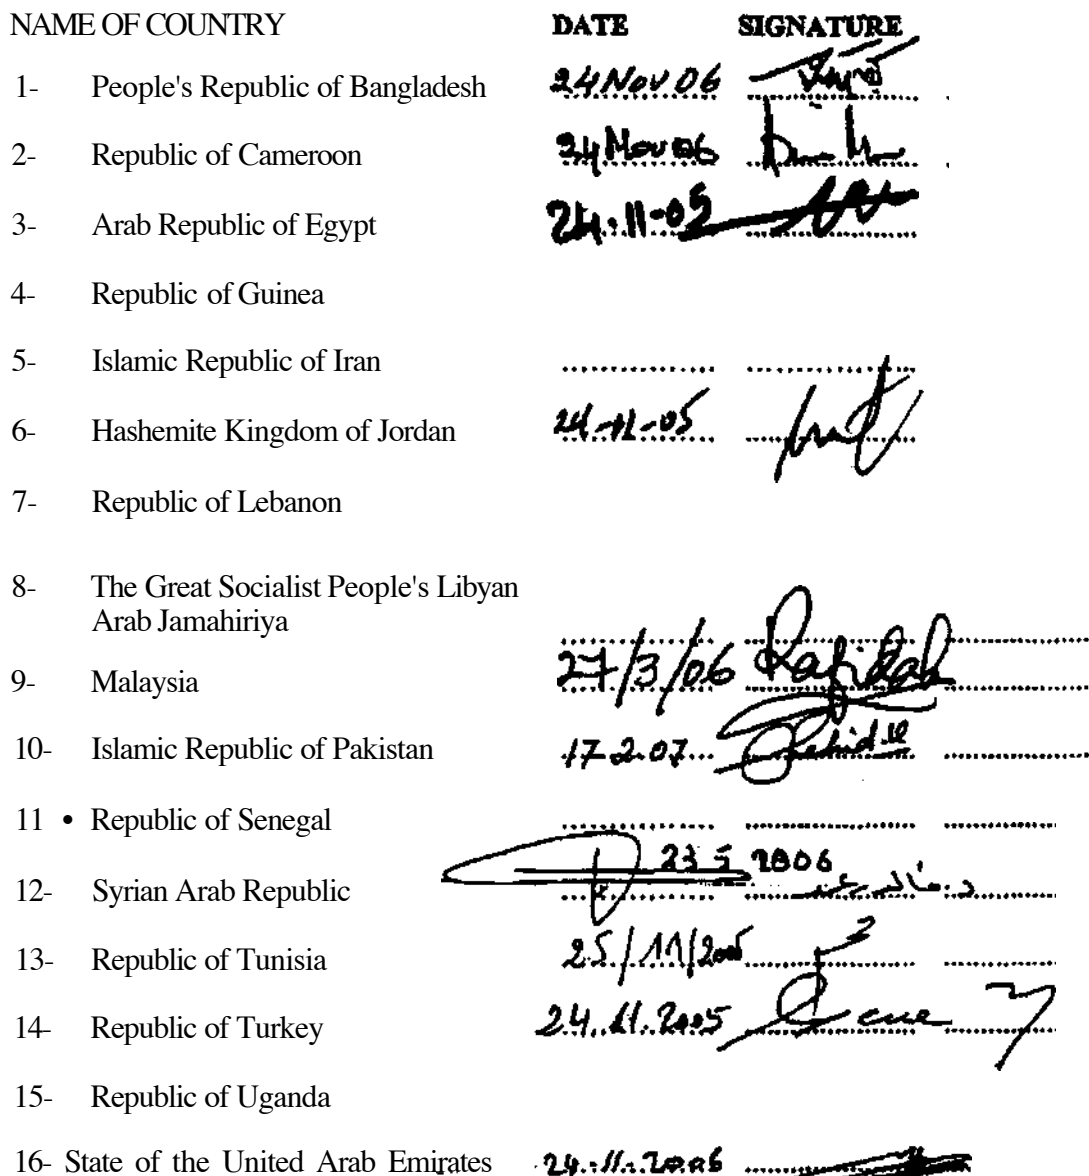 NAME OF COUNTRY DATE SIGNATURE
1- People's Republic of Bangladesh 24 Nov 06
2- Republic of Cameroon 24 Nov 06
3- Arab Republic of Egypt 24.11-05
4- Republic of Guinea
5- Islamic Republic of Iran
6- Hashemite Kingdom of Jordan 24-11-05
7- Republic of Lebanon
8- The Great Socialist People's Libyan
Arab Jamahiriya
9- Malaysia 27/3/06 Rafidah
10- Islamic Republic of Pakistan 17-2.07
11 • Republic of Senegal
12- Syrian Arab Republic 23 5 2006
13- Republic of Tunisia 25/11/2005
14- Republic of Turkey 24.11.2005
15- Republic of Uganda
16- State of the United Arab Emirates 24.11.2006